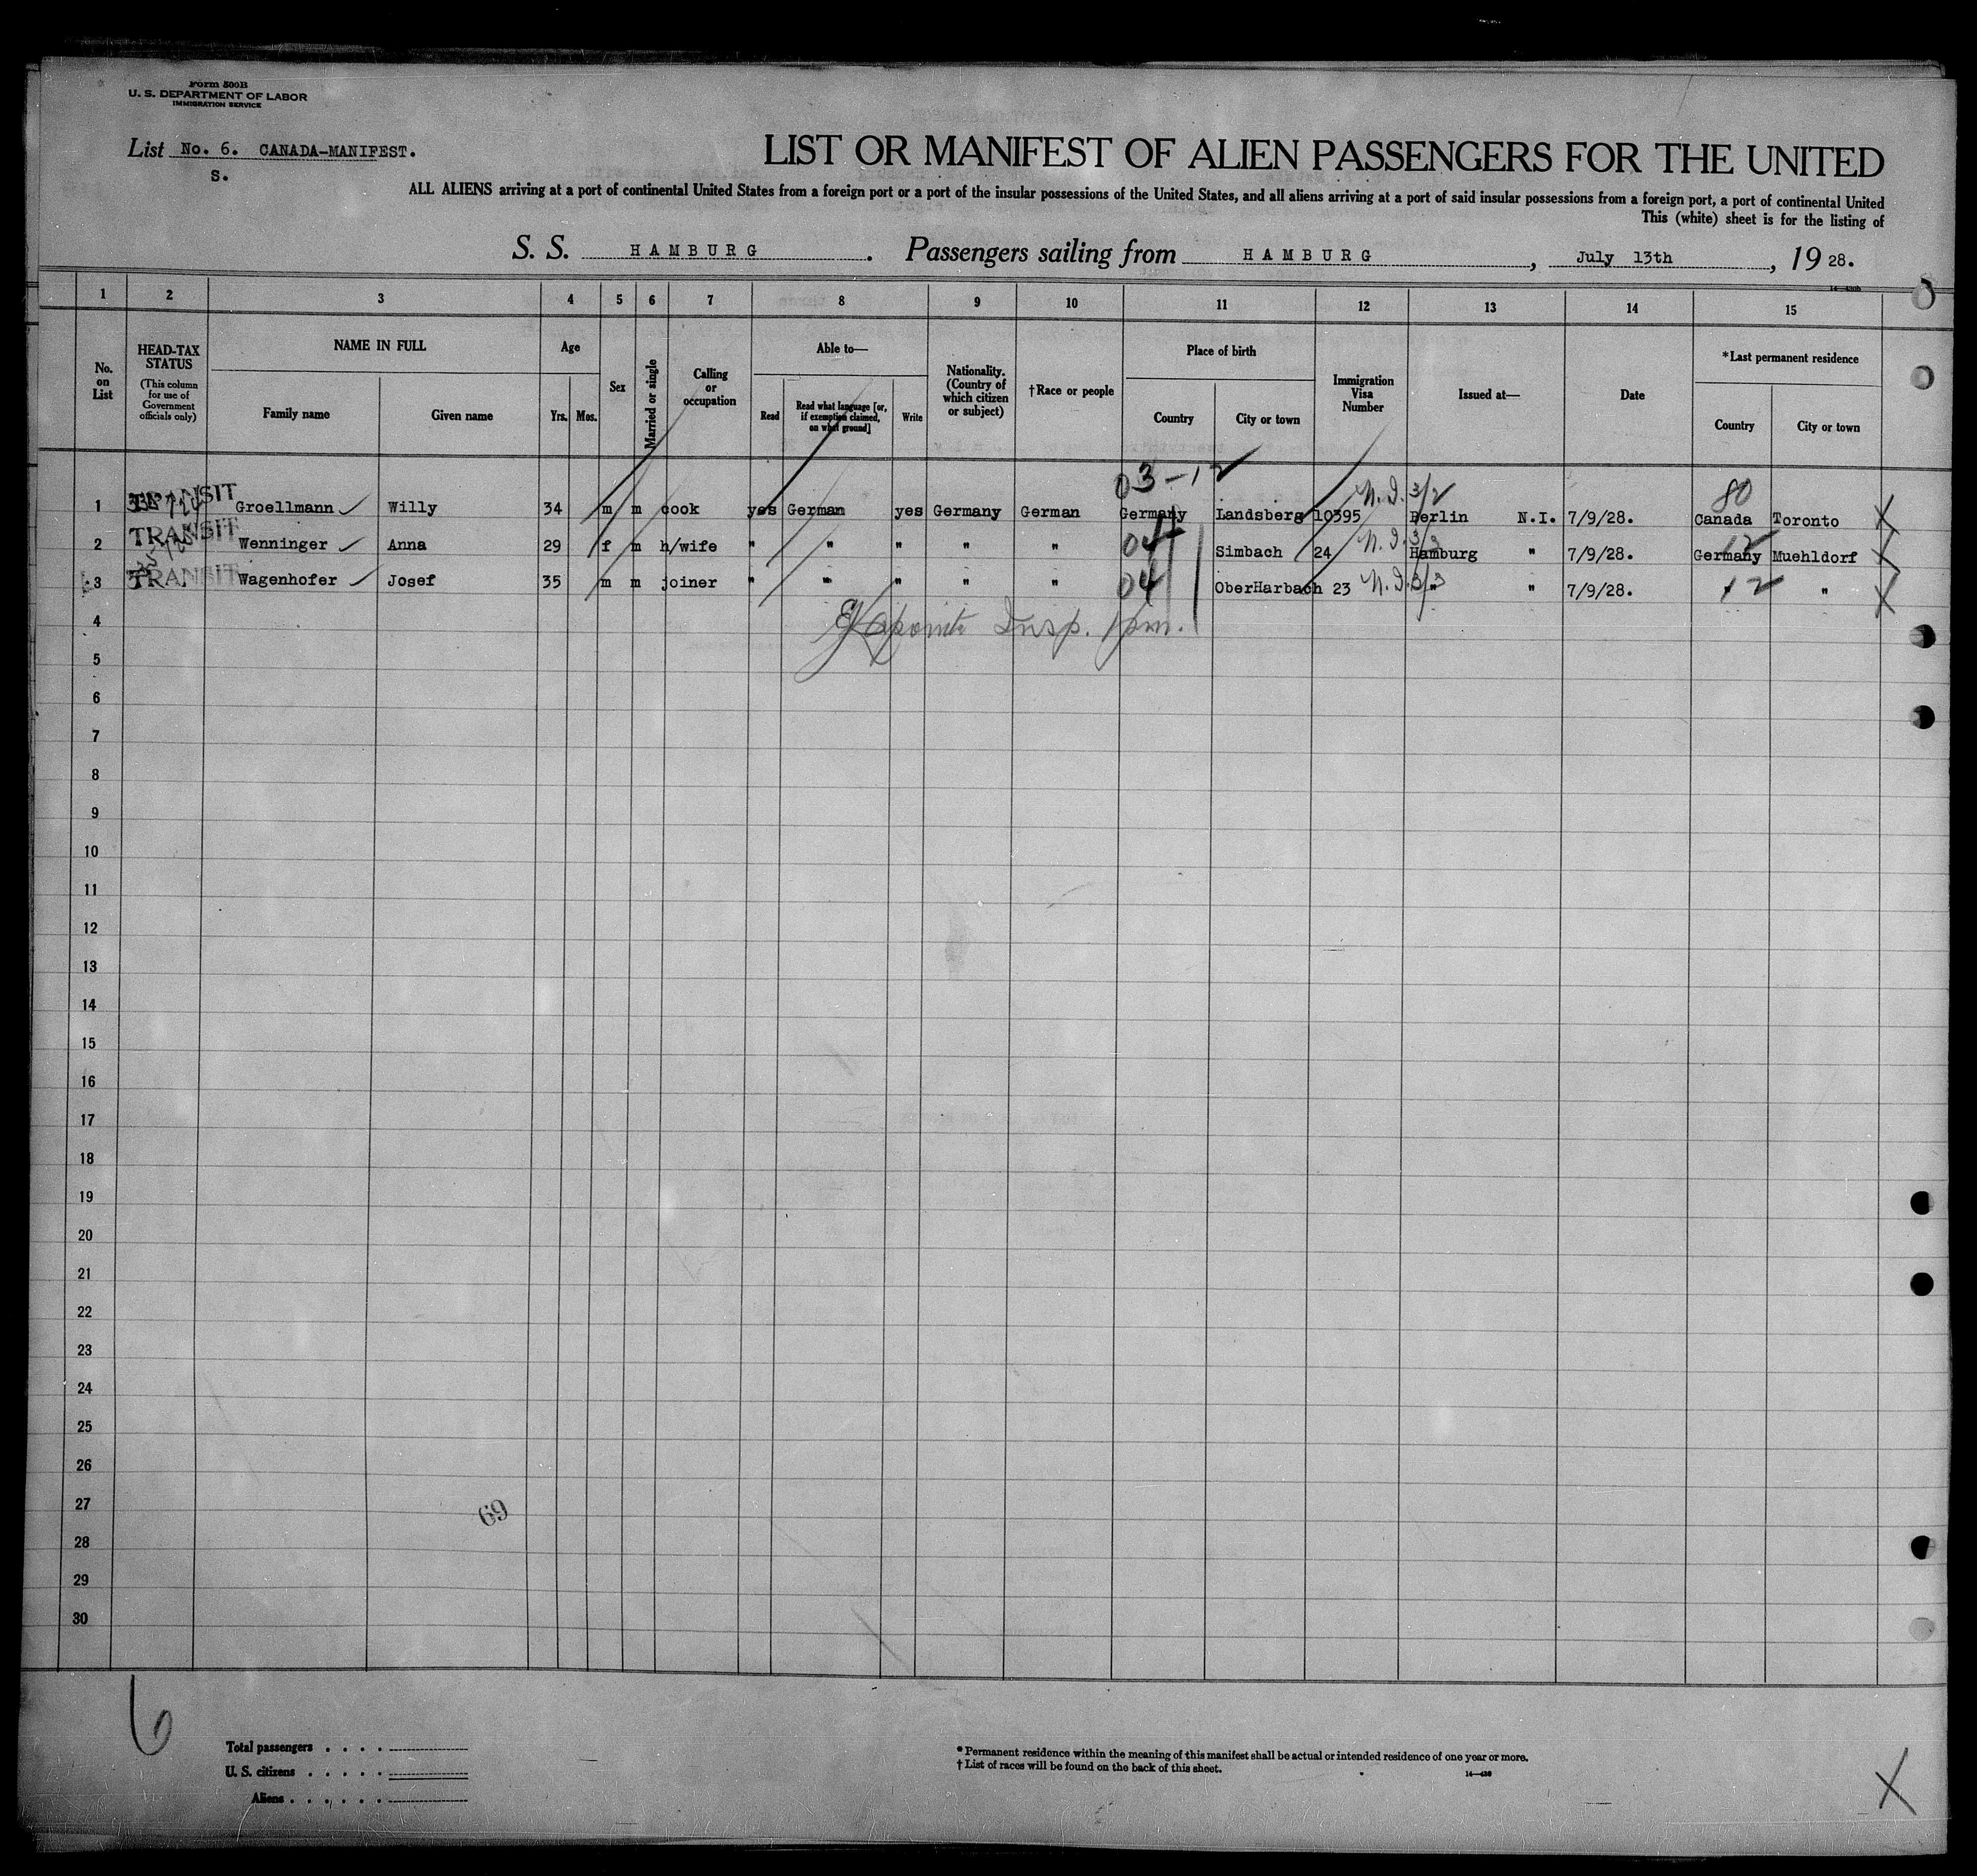 Form 500B
U. S. DEPARTMENT OF LABOR
IMMIGRATION SERVICE
List No. 6. CANADA-MANIFEST.
S.
LIST OR MANIFEST OF ALIEN PASSENGERS FOR THE UNITED
ALL ALIENS arriving at a port of continental United States from a foreign port or a port of the insular possessions of the United States, and all aliens arriving at a port of said insular possessions from a foreign port, a port of continental United
This (white) sheet is for the listing of
S. S. HAMBURG. Passengers sailing from HAMBURG, July 13th, 19 28.
1 2 3 4 5 6 7 8 9 10 11 12 13 14 15
No. on List
HEAD-TAX STATUS
(This column for use of Government officials only)
NAME IN FULL
Family name
Given name
Age
Yrs. Mos.
Sex
Married or single
Calling or occupation
Able to—
Read
Read what language [or, if exemption claimed, on what ground]
Write
Nationality. (Country of which citizen or subject)
†Race or people
Place of birth
Country
City or town
Immigration Visa Number
Issued at—
Date
*Last permanent residence
Country
City or town
03-12
N.I. 3/2
80
1 TRANSIT Groellmann Willy 34 m m cook yes German yes Germany German Germany Landsberg 10395 Berlin N.I. 7/9/28. Canada Toronto X
2 TRANSIT Wenninger Anna 29 f m h/wife " " " " " 04 Simbach 24 N.I. 3/3 Hamburg " 7/9/28. Germany 12 Muehldorf X
3 TRANSIT Wagenhofer Josef 35 m m joiner " " " " " 04 OberHarbach 23 N.I. 3/3 " " 7/9/28. " 12 " X
Insp. 1pm.
4
5
6
7
8
9
10
11
12
13
14
15
16
17
18
19
20
21
22
23
24
25
26
27
69
28
29
30
6
Total passengers . . . .
U. S. citizens . . . . .
Aliens . . . . . .
* Permanent residence within the meaning of this manifest shall be actual or intended residence of one year or more.
† List of races will be found on the back of this sheet.
X